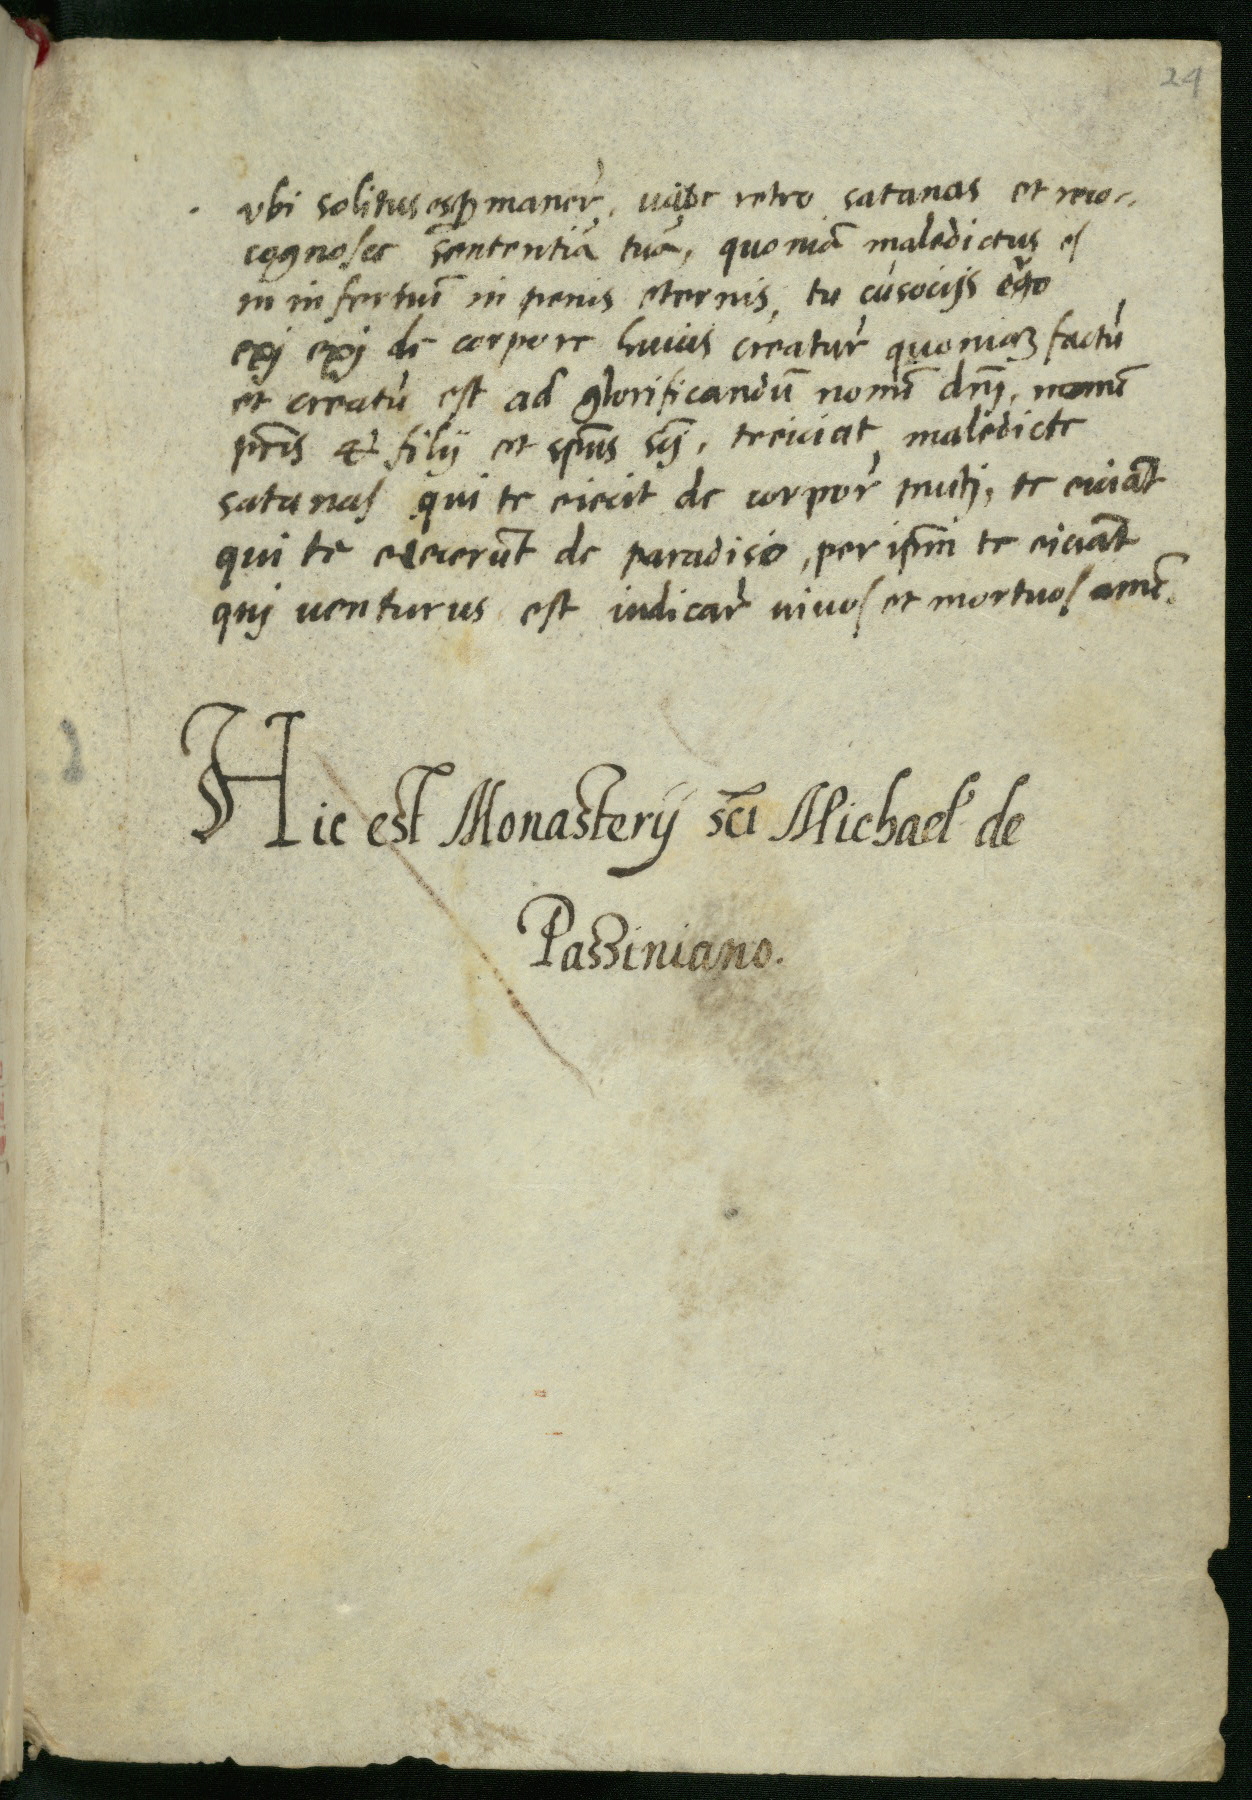 24
ubi solitus es ꝑmaner̄, uade retro satanas et reco-
cognosce sententiā tuā, quoniā maledictus es
in infernū in penis eternis, tu cū socijs
exj exj de corpore huius creatur̄ quoniaʒ factū
et creatū est ad glorificandū nomē dn̄j, nomē
pr̄is & filij et sp̄us sc̄j, te eiciat maledicte
satanas qui te eiecit de corpor̄ mutj, te eiciāt
qui te eiecerūt de paradiso, per ip̄m te eiciāt
quj uenturus est iudicar̄ uiuos et mortuos amē.
Hic est Monasterij sc̄i Michael' de
Passiniano.